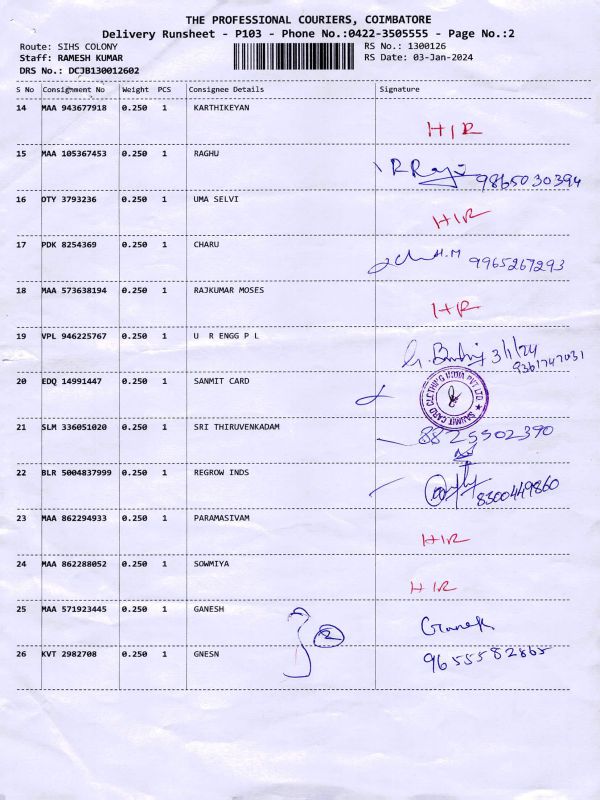 THE PROFESSIONAL COURIERS, COIMBATORE
Delivery Runsheet - P103 - Phone No.:0422-3505555 - Page No.:2
Route: SIHS COLONY RS No.: 1300126
Staff: RAMESH KUMAR RS Date: 03-Jan-2024
DRS No.: DCJB130012602
S No Consignment No Weight PCS Consignee Details Signature
14 MAA 943677918 0.250 1 KARTHIKEYAN
HIR
15 MAA 105367453 0.250 1 RAGHU
9865030394
16 OTY 3793236 0.250 1 UMA SELVI
HIR
17 PDK 8254369 0.250 1 CHARU
H.M 9965267293
18 MAA 573638194 0.250 1 RAJKUMAR MOSES
HIR
19 VPL 946225767 0.250 1 U R ENGG P L
3/1/24
9361747031
20 EDQ 14991447 0.250 1 SANMIT CARD
SANMIT CARD CLOTHING INDIA PVT LTD
21 SLM 336051020 0.250 1 SRI THIRUVENKADAM
8825502390
22 BLR 5004837999 0.250 1 REGROW INDS
8300449860
23 MAA 862294933 0.250 1 PARAMASIVAM
HIR
24 MAA 862288052 0.250 1 SOWMIYA
HIR
25 MAA 571923445 0.250 1 GANESH
2 Ganesh
26 KVT 2982708 0.250 1 GNESN
9655582865